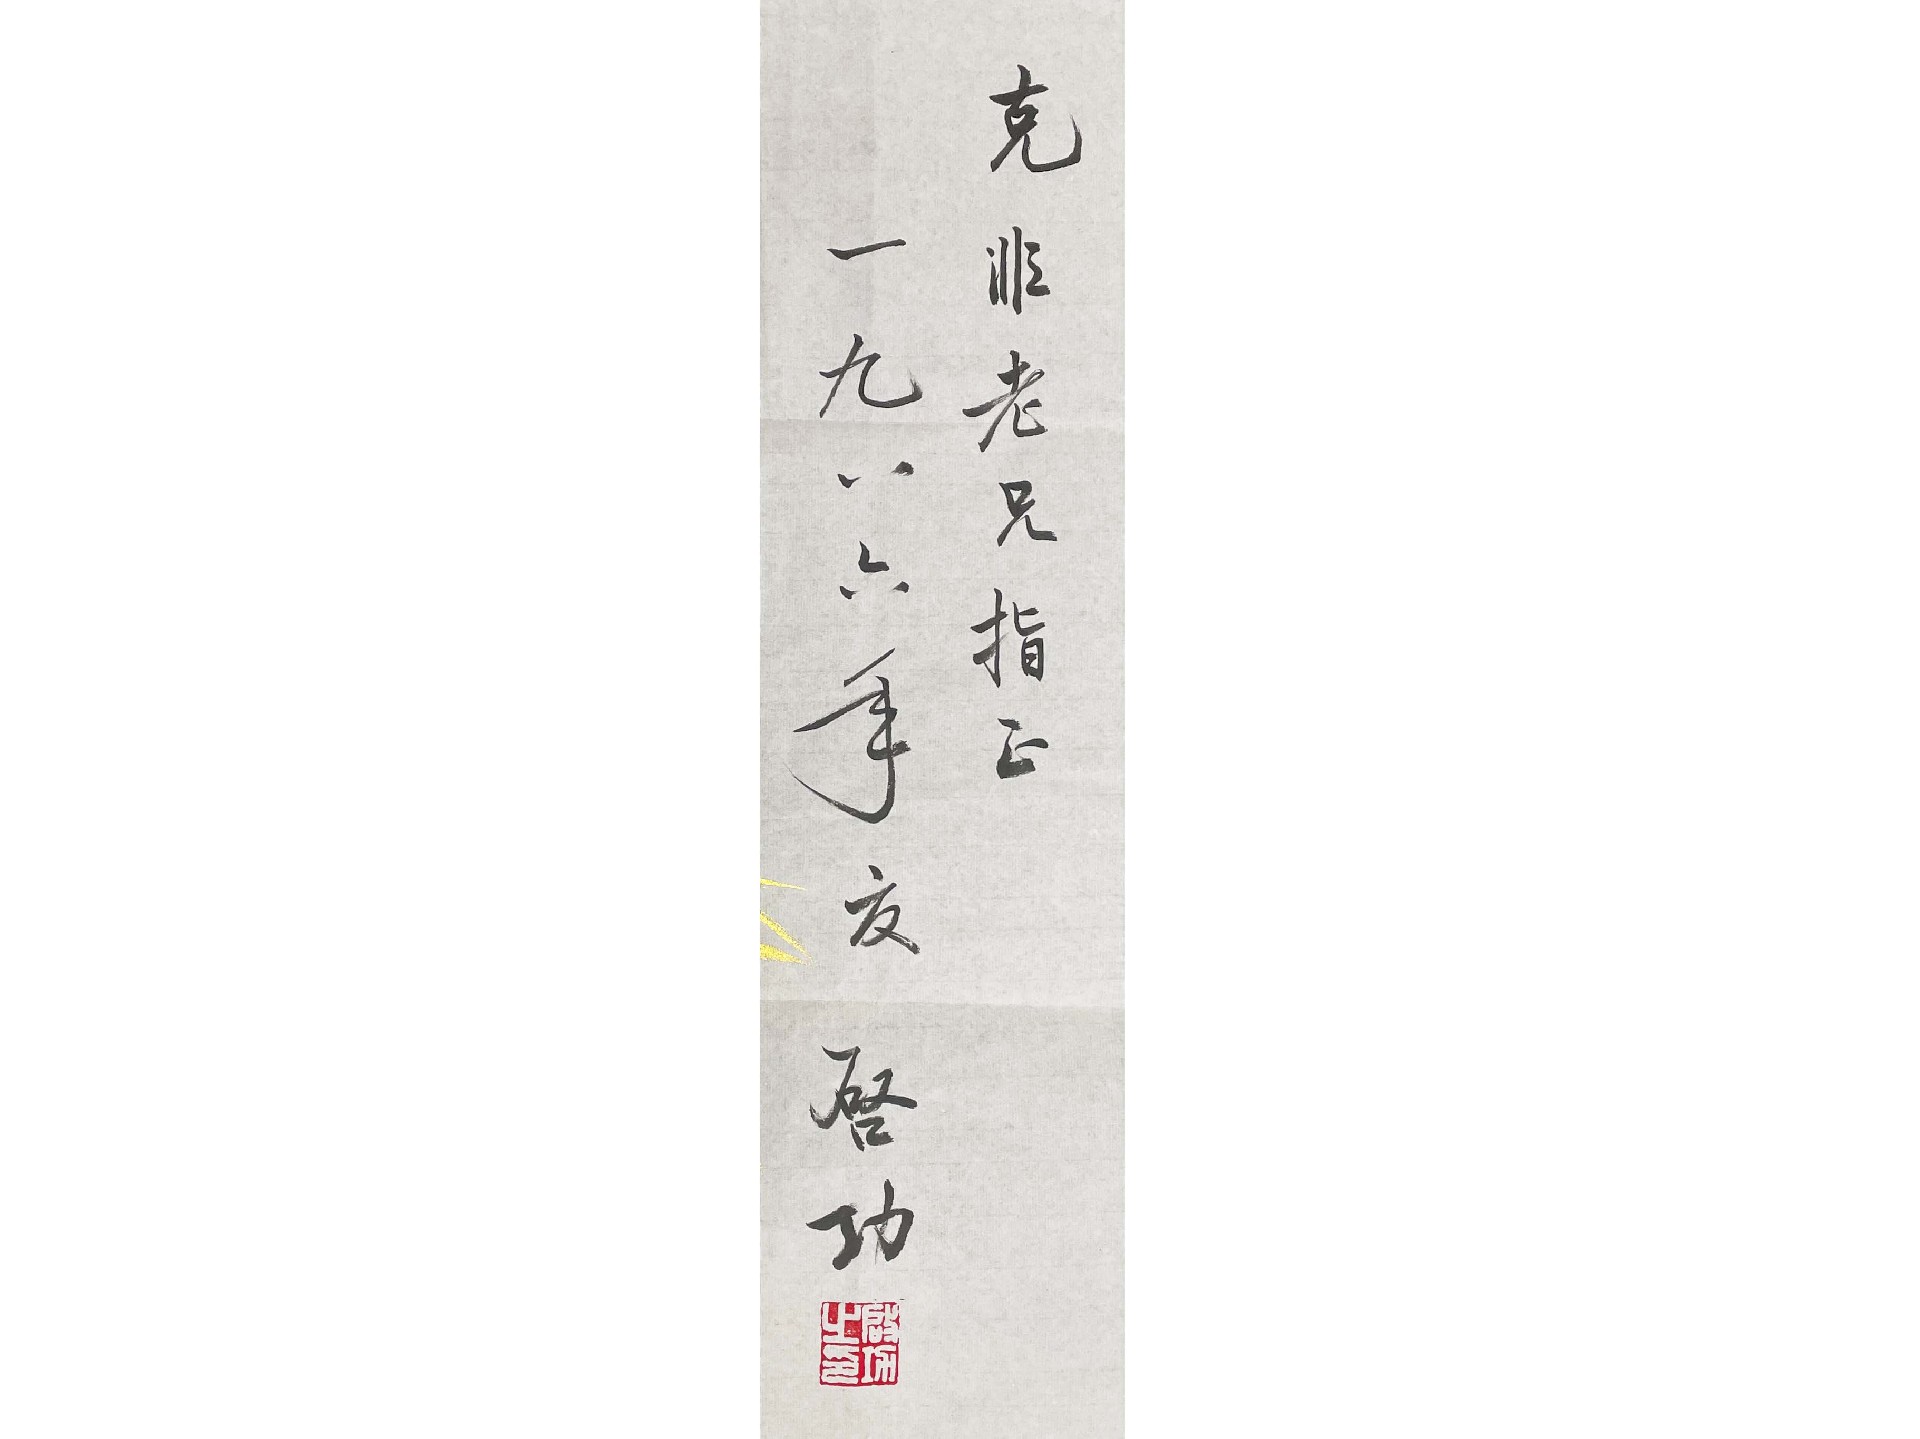 克非老兄指正
一九八六年夏 启功
启功之印